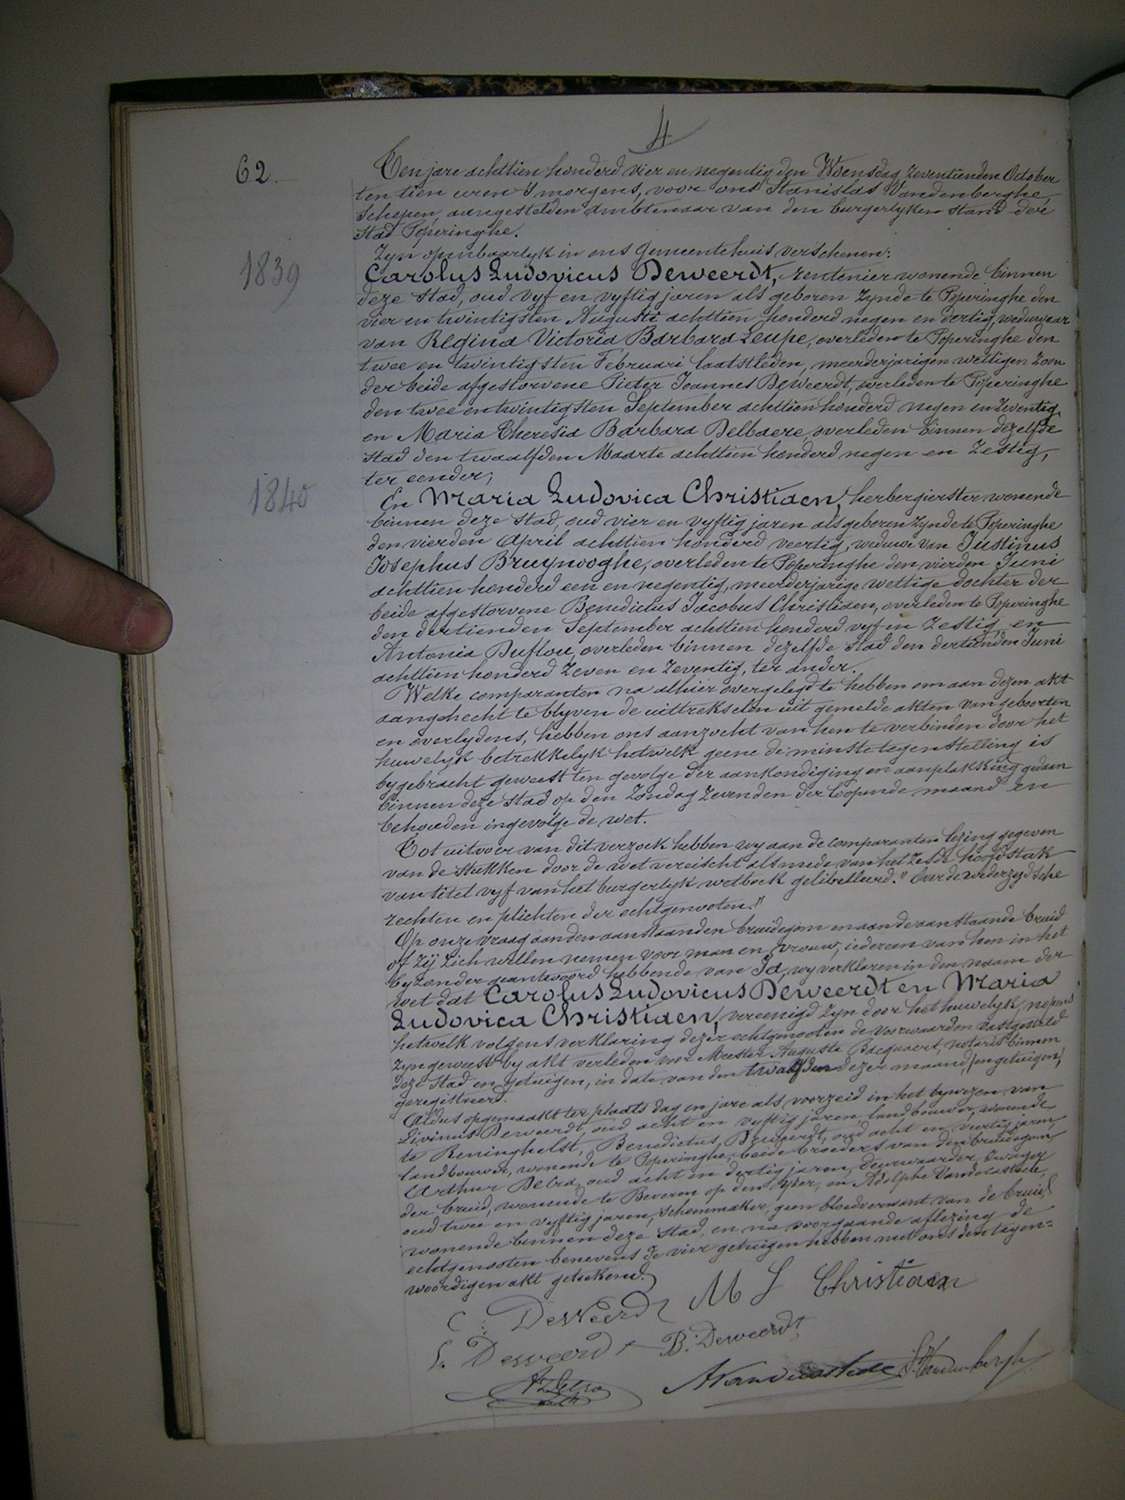 4
62.
Ten jare achttien honderd vier en negentig den Woensdag zeventienden October
ten tien uren 's morgens, voor ons Stanislas Vandenberghe,
Schepen, aangestelden ambtenaar van den burgerlyken stand der
stad Poperinghe.
Zyn openbaarlyk in ons gemeentehuis verschenen:
1839
Carolus Ludovicus Deweerdt, rentenier wonende binnen
deze stad, oud vyf en vyftig jaren als geboren zynde te Poperinghe den
vier en twintigsten Augusti achttien honderd negen en dertig, weduwaar
van Regina Victoria Barbara Leupe, overleden te Poperinghe den
twee en twintigsten Februari laatstleden, meerderjarigen wettigen zoon
der beide afgestorvene Pieter Joannes Deweerdt, overleden te Poperinghe
den twee en twintigsten September achttien honderd negen en zeventig,
en Maria Theresia Barbara Delbaere, overleden binnen dezelfde
stad den twaalfden Maarte achttien honderd negen en zestig,
ter eender;
1840
En Maria Ludovica Christiaen, herbergierster wonende
binnen deze stad, oud vier en vyftig jaren als geboren zynde te Poperinghe
den vierden April achttien honderd veertig, weduwe van Justinus
Josephus Bruynooghe, overleden te Poperinghe den vierden Juni
achttien honderd een en negentig, meerderjarige wettige dochter der
beide afgestorvene Benedictus Jacobus Christiaen, overleden te Poperinghe
den dertienden September achttien honderd vyf en zestig, en
Antonia Duflou, overleden binnen dezelfde stad den dertienden Juni
achttien honderd zeven en zeventig, ter ander.
Welke comparanten na alhier overgelegd te hebben om aan dezen akt
aangehecht te blyven de uittrekselen uit gemelde akten van geboorten
en overlydens, hebben ons aanzocht van hen te verbinden door het
huwelyk betrekkelyk hetwelk geene de minste tegenstelling is
bygebracht geweest ten gevolge der aankondiging en aanplakking gedaan
binnen deze stad op den Zondag zevenden der loopende maand en
behouden ingevolge de wet.
Tot uitvoer van dit verzoek hebben wy aan de comparanten lezing gegeven
van de stukken door de wet vereischt alsmede van het zesde hoofdstuk
van titel vyf van het burgerlyk wetboek gelibelleerd: "Over de wederzydsche
rechten en plichten der echtgenooten."
Op onze vraag aan den aanstaanden bruidegom en aan de aanstaande bruid
of zij zich willen nemen voor man en vrouw, iedereen van hen in het
byzonder geantwoord hebbende van Ja, wy verklaren in den naam der
wet dat Carolus Ludovicus Deweerdt en Maria
Ludovica Christiaen, vereenigd zyn door het huwelyk, nopens
hetwelk volgens verklaring dezer echtgenooten de voorwaarden vastgesteld
zyn geweest by akt verleden voor Meester Auguste Bacquaert, notaris binnen
deze stad en getuigen, in date van den twaalfden dezer maand, (en getuigen)
geregistreerd.
Aldus opgemaakt ter plaats dag en jare als voorzeid in het bywezen van
Livinus Deweerdt, oud acht en vyftig jaren, landbouwer, wonende
te Reninghelst, Benedictus Deweerdt, oud acht en veertig jaren,
landbouwer, wonende te Poperinghe, beide broeders van den bruidegom,
Arthur Delra, oud acht en dertig jaren, deurwaarder, zwager
der bruid, wonende te Beveren op den Yzer, en Adolphe Vandecasteele,
oud twee en vyftig jaren, schoenmaker, geen bloedverwant van de bruid,
wonende binnen deze stad, en na voorgaande aflezing de
echtgenooten benevens de vier getuigen hebben met ons den tegen=
woordigen akt geteekend.
C: DeWeerdt M L Christiaen
L. Deweerdt B. Deweerdt